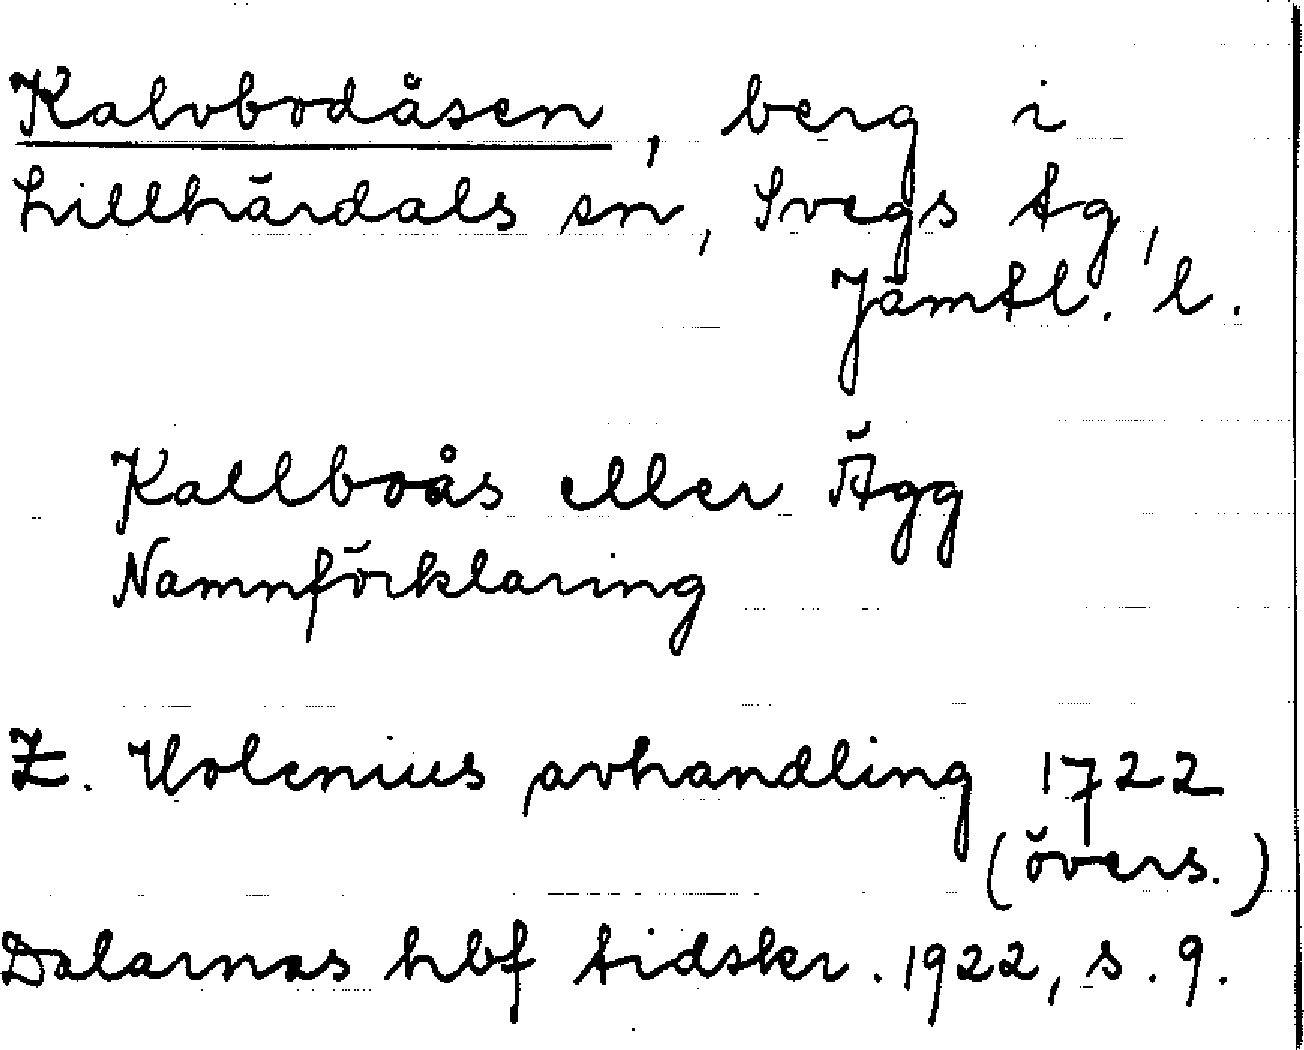 Kalvbodåsen, berg i
Lillhärdals sn, Svegs tg,
Jämtl. l.
Kallboås eller Ägg
Namnförklaring
Z. Holenius avhandling 1722
(övers.)
Dalarnas hbf tidskr. 1922, s. 9.